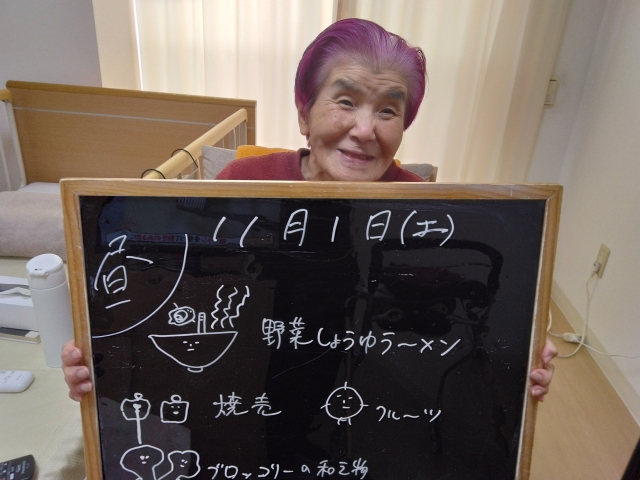 11月1日(土)
昼
野菜しょうゆラーメン
焼売 フルーツ
ブロッコリーの和え物